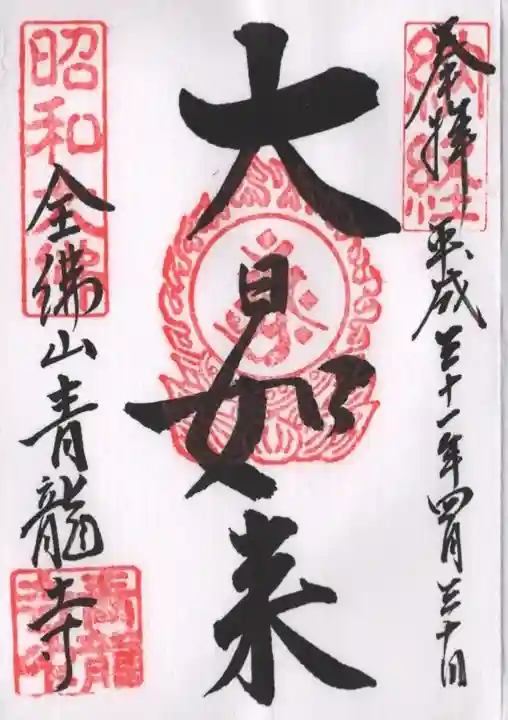 奉拝 平成三十一年四月三十日
大日如来
昭和大佛
全佛山青龍寺